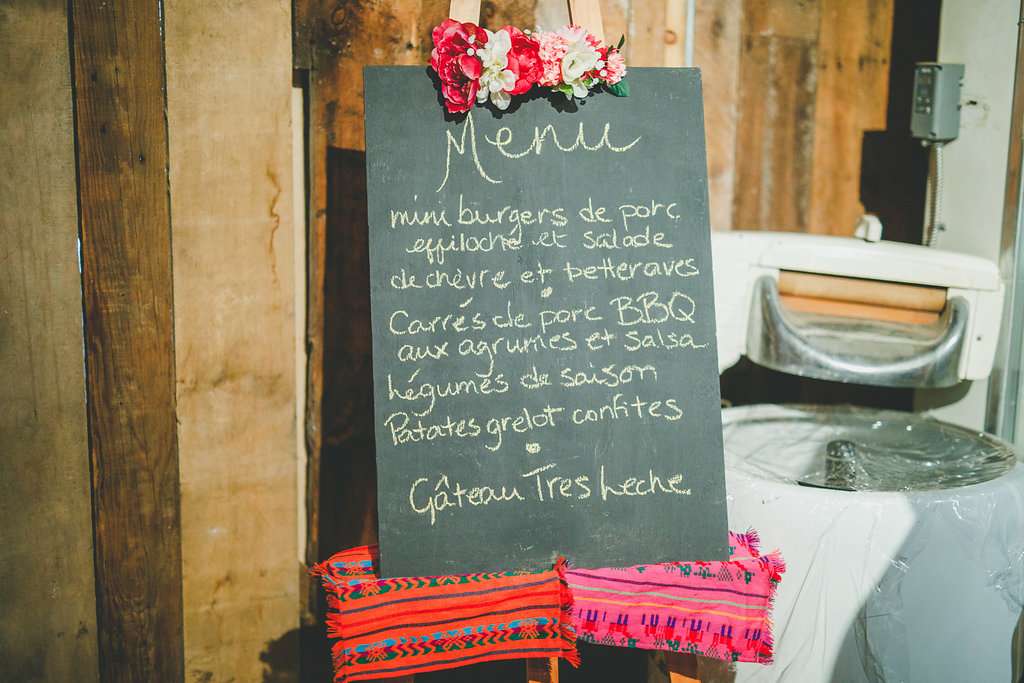 Menu
mini burgers de porc
effiloché et salade
de chèvre et betteraves
Carrés de porc BBQ
aux agrumes et salsa
Légumes de saison
Patates grelot confites
Gâteau Tres Leche